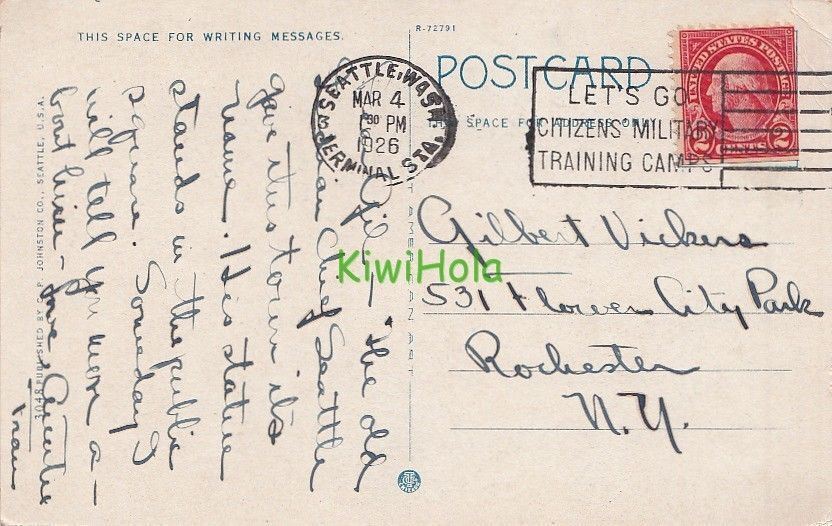 THIS SPACE FOR WRITING MESSAGES.
R-72791
POST CARD
THIS SPACE FOR ADDRESS ONLY
SEATTLE, WASH.
MAR 4
1 30 PM
1926
TERMINAL STA.
LET'S GO
CITIZENS MILITARY
TRAINING CAMPS
UNITED STATES POSTAGE
2 CENTS 2
Gilbert Vickers
531 Flower City Park
Rochester
N.Y.
Gil — the old
Indian Chief Seattle
gave this town its
name. His statue
stands in the public
square. Someday I
will tell you more a-
bout him — Love
KiwiHola
3048 PUBLISHED BY C. P. JOHNSTON CO., SEATTLE, U.S.A.